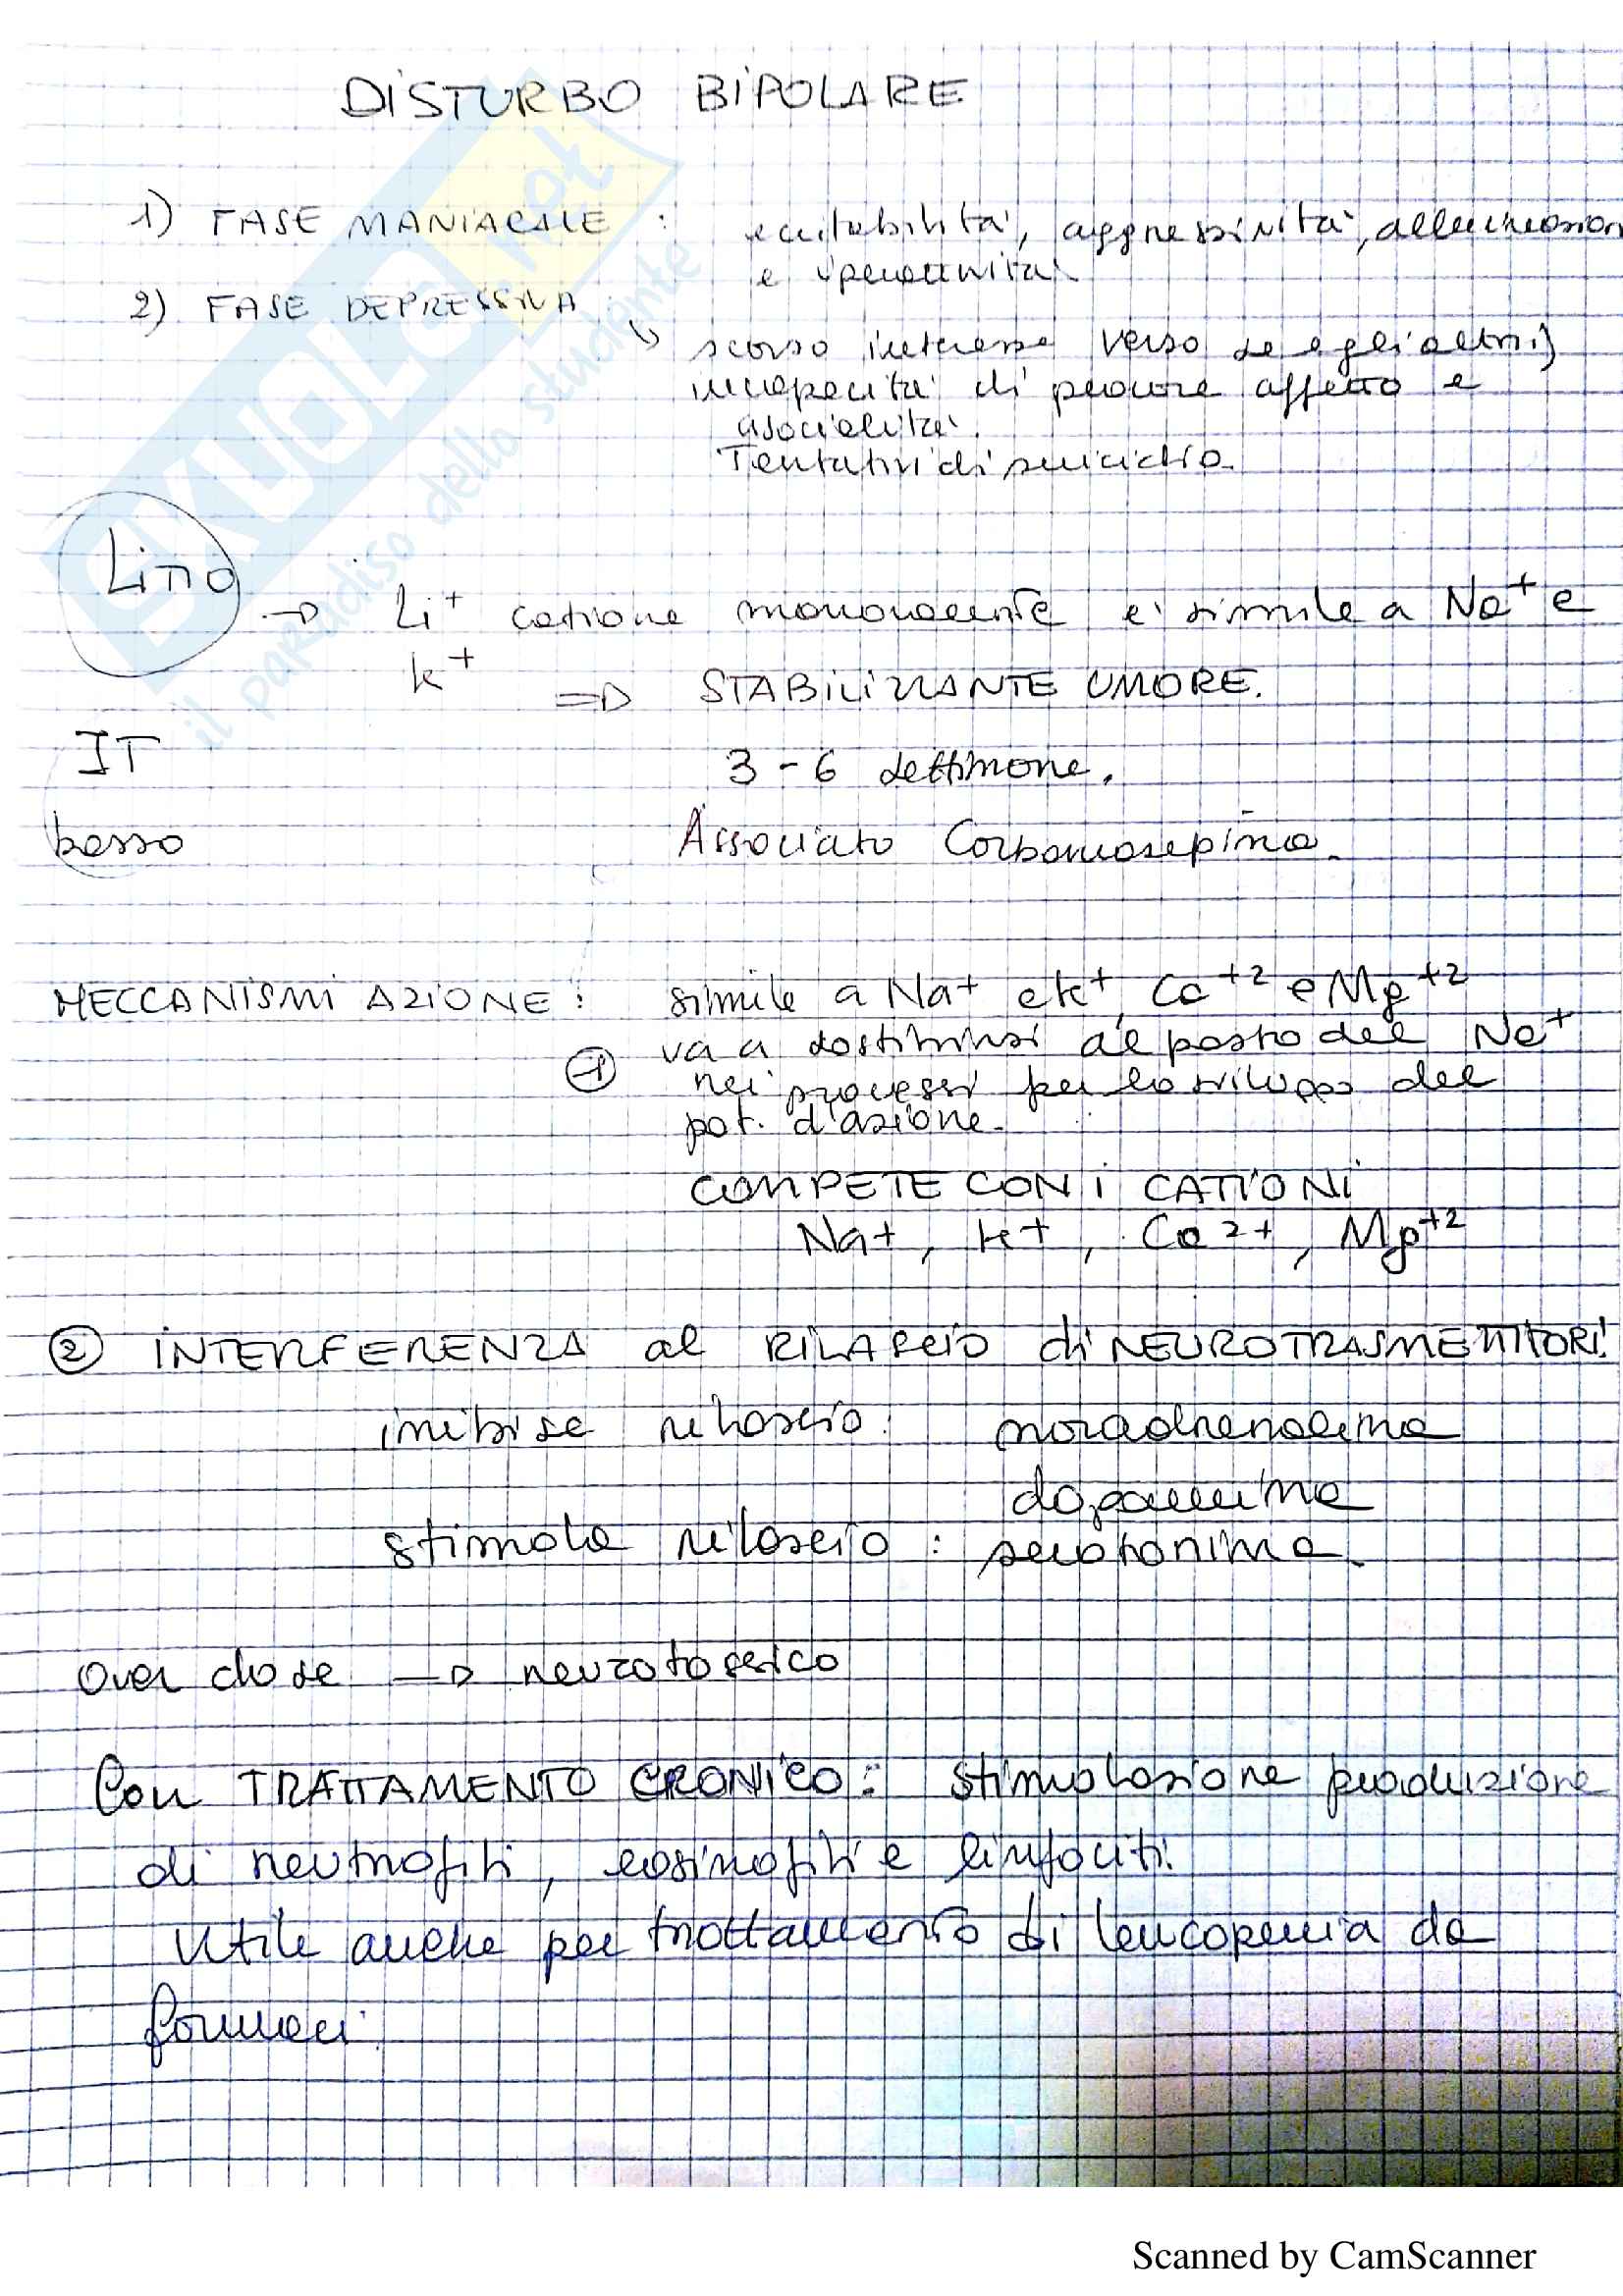 DISTURBO BIPOLARE
1) FASE MANIACALE : eccitabilità, aggressività, allucinazion
e iperattività.
2) FASE DEPRESSIVA :
↳ scarso interesse verso se e gli altri;
incapacità di provare affetto e
asocialità.
Tentativi di suicidio.
Litio → Li+ catione monovalente e' simile a Na+ e
K+ => STABILIZZANTE UMORE.
IT 3-6 settimane.
basso Associato Carbamazepina.
MECCANISMI AZIONE : simile a Na+ e K+, Ca+2 e Mg+2
① va a sostituirsi al posto del Na+
nei processi per lo sviluppo del
pot. d'azione.
COMPETE CON I CATIONI
Na+, K+, Ca2+, Mg+2
② INTERFERENZA al RILASCIO di NEUROTRASMETTITORI:
inibisce rilascio: noradrenalina
dopamina
stimola rilascio : serotonina.
Over dose → neurotossico
Con TRATTAMENTO CRONICO: stimolazione produzione
di neutrofili, eosinofili e linfociti.
Utile anche per trattamento di leucopenia da
farmaci.
SKUOLA.net
il paradiso dello studente
Scanned by CamScanner